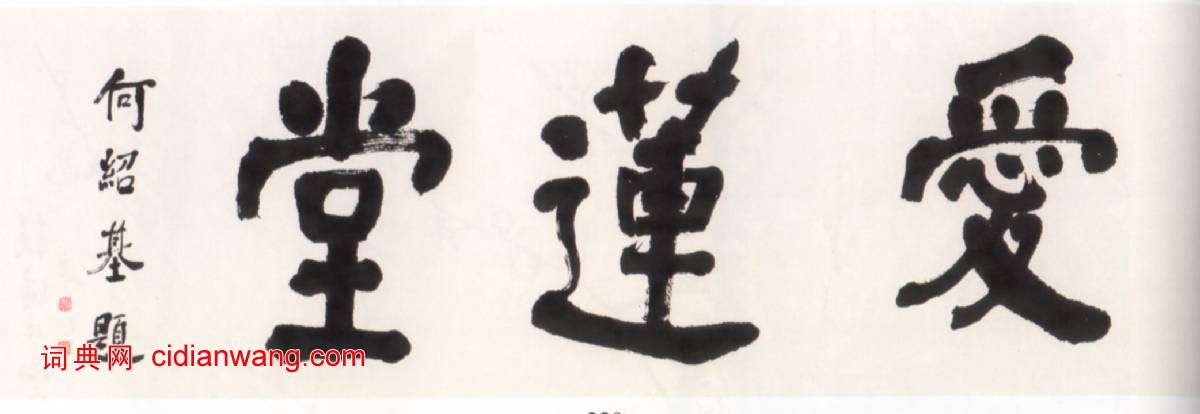 愛蓮堂
何紹基題
词典网 cidianwang.com